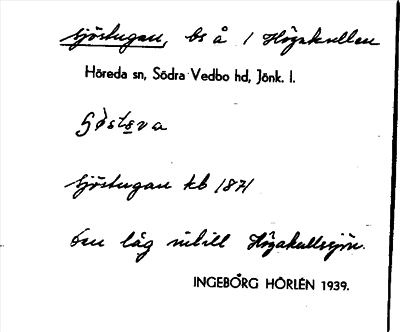 Sjöstugan, bs å 1 Högakullen
Höreda sn, Södra Vedbo hd, Jönk. l.
Sjöstugan kb 1871
den låg intill Högakullsjön.
INGEBORG HÖRLÉN 1939.